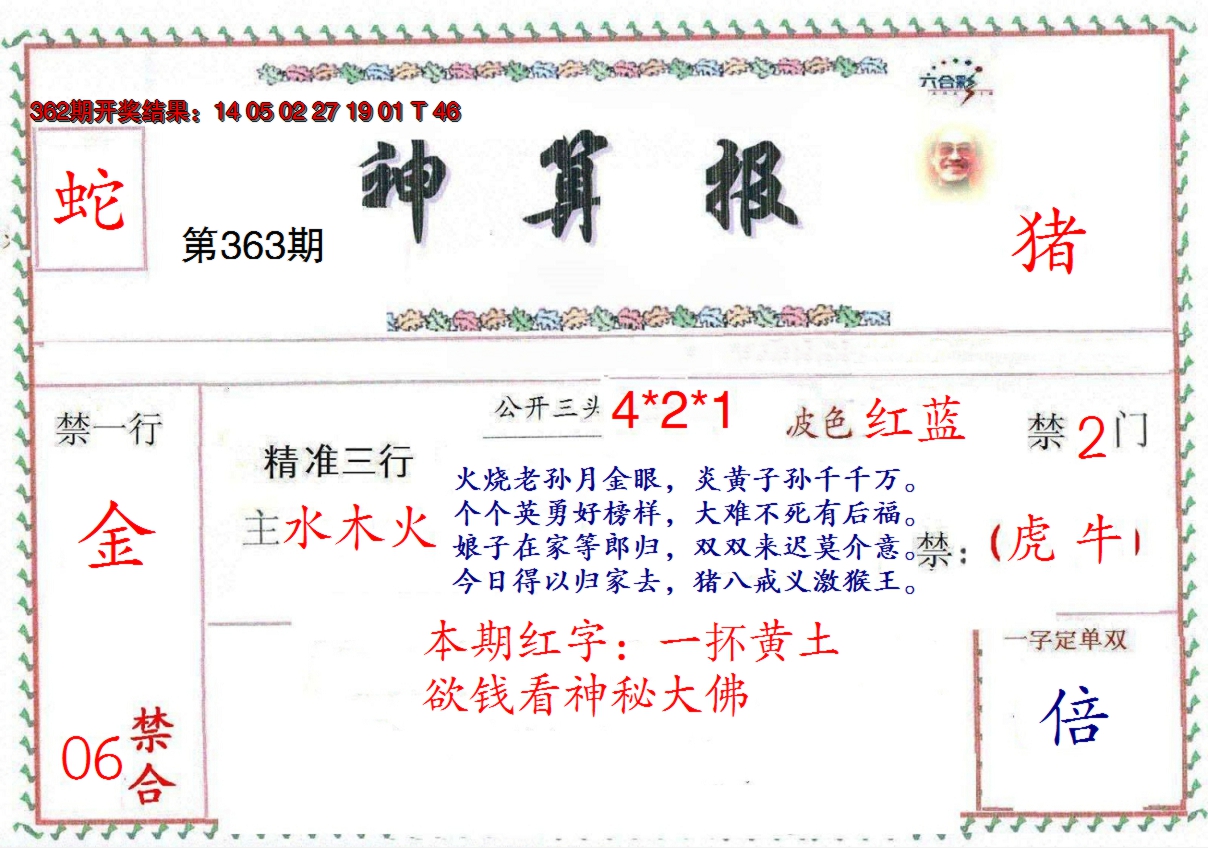 六合彩
362期开奖结果：14 05 02 27 19 01 T 46
神算报
蛇
第363期
猪
禁一行
金
06
禁合
精准三行
主水木火
公开三头 4*2*1
波色 红蓝
禁2门
火烧老孙月金眼，炎黄子孙千千万。
个个英勇好榜样，大难不死有后福。
娘子在家等郎归，双双来迟莫介意。
今日得以归家去，猪八戒义激猴王。
禁：（虎 牛）
本期红字：一抔黄土
欲钱看神秘大佛
一字定单双
倍